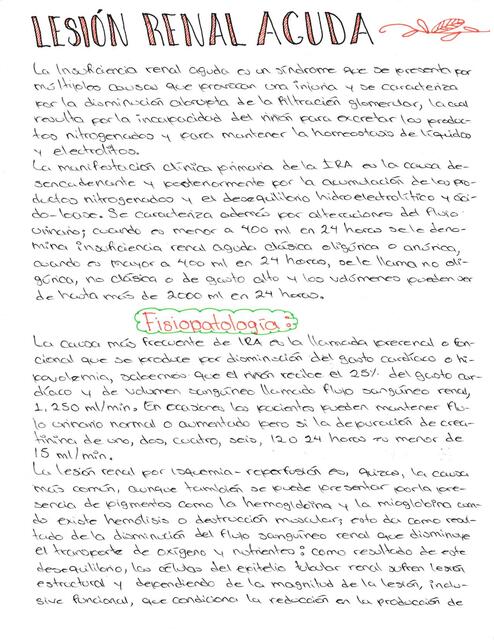 LESIÓN RENAL AGUDA
La Insuficiencia renal aguda es un síndrome que se presenta por
múltiples causas que provocan una injuria y se caracteriza
por la disminución abrupta de la filtración glomerular, la cual
resulta por la incapacidad del riñón para excretar los produc-
tos nitrogenados y para mantener la homeostasis de líquidos
y electrolitos.
La manifestación clínica primaria de la IRA es la causa de-
sencadenante y posteriormente por la acumulación de los pro-
ductos nitrogenados y el desequilibrio hidroelectrolítico y áci-
do-base. Se caracteriza además por alteraciones del flujo
urinario; cuando es menor a 400 ml en 24 horas se le deno-
mina insuficiencia renal aguda clásica oligúrica o anúrica,
cuando es mayor a 400 ml en 24 horas, se le llama no oli-
gúrica, no clásica o de gasto alto y los volúmenes pueden ser
de hasta más de 2000 ml en 24 horas.
Fisiopatología:
La causa más frecuente de IRA es la llamada prerenal o fun-
cional que se produce por disminución del gasto cardíaco o hi-
povolemia, sabemos que el riñón recibe el 25% del gasto car-
díaco y de volumen sanguíneo llamado flujo sanguíneo renal,
1,250 ml/min. En ocasiones los pacientes pueden mantener flu-
jo urinario normal o aumentado pero si la depuración de crea-
tinina de uno, dos, cuatro, seis, 12 o 24 horas es menor de
15 ml/min.
La lesión renal por isquemia-reperfusión es, quizás, la causa
más común, aunque también se puede presentar por la pre-
sencia de pigmentos como la hemoglobina y la mioglobina cuan-
do existe hemólisis o destrucción muscular; esto da como resul-
tado de la disminución del flujo sanguíneo renal que disminuye
el transporte de oxígeno y nutrientes: como resultado de este
desequilibrio, las células del epitelio tubular renal sufren lesión
estructural y dependiendo de la magnitud de la lesión, inclu-
sive funcional, que condiciona la reducción en la producción de